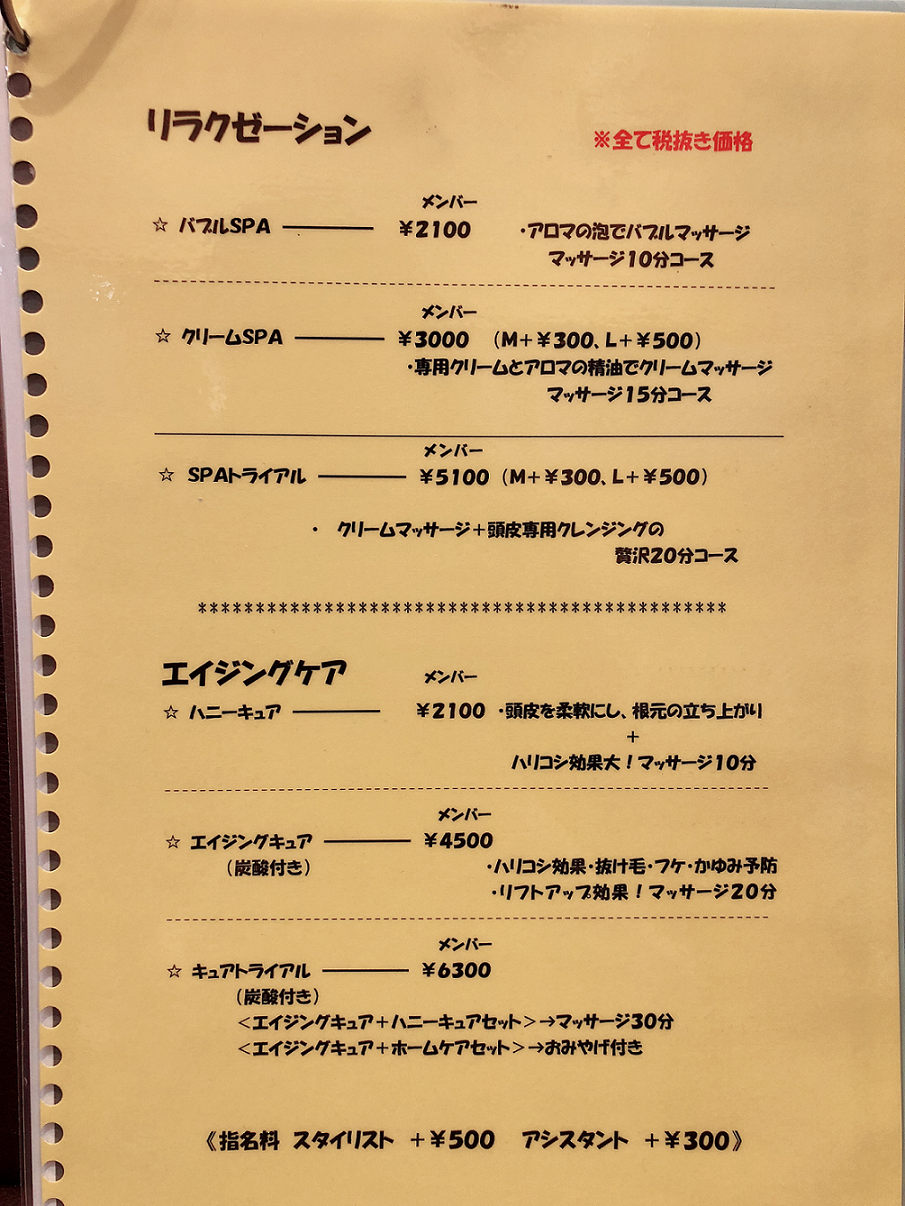 リラクゼーション
※全て税抜き価格
メンバー
☆ バブルSPA ――― ¥2100 ・アロマの泡でバブルマッサージ
マッサージ10分コース
メンバー
☆ クリームSPA ――― ¥3000 (M+¥300、L+¥500)
・専用クリームとアロマの精油でクリームマッサージ
マッサージ15分コース
メンバー
☆ SPAトライアル ――― ¥5100 (M+¥300、L+¥500)
・ クリームマッサージ+頭皮専用クレンジングの
贅沢20分コース
**********************************************
エイジングケア メンバー
☆ ハニーキュア ――― ¥2100 ・頭皮を柔軟にし、根元の立ち上がり
+
ハリコシ効果大!マッサージ10分
メンバー
☆ エイジングキュア ――― ¥4500
(炭酸付き) ・ハリコシ効果・抜け毛・フケ・かゆみ予防
・リフトアップ効果!マッサージ20分
メンバー
☆ キュアトライアル ――― ¥6300
(炭酸付き)
<エイジングキュア+ハニーキュアセット>→マッサージ30分
<エイジングキュア+ホームケアセット>→おみやげ付き
《指名料 スタイリスト +¥500 アシスタント +¥300》